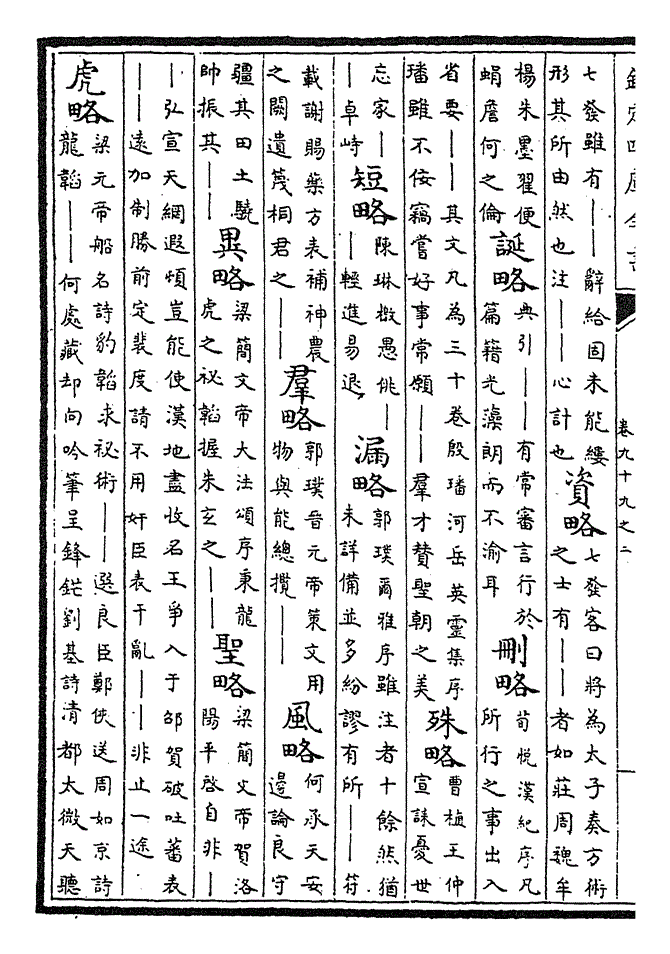 欽定四庫全書
卷九十九之二
七發雖有——辭給固未能縷
形其所由然也注——心計也
資略
七發客曰將為太子奏方術
之士有——者如莊周魏牟
楊朱墨翟便
蜎詹何之倫
誕略
典引——有常審言行於
篇籍光藻朗而不渝耳
刪略
荀悅漢紀序凡
所行之事出入
省要——其文凡為三十卷殷璠河岳英靈集序
璠雖不佞竊嘗好事常願——羣才賛聖朝之美
殊略
曹植王仲
宣誄憂世
忘家—
—卓峙
短略
陳琳檄愚佻—
—輕進易退
漏略
郭璞爾雅序雖注者十餘然猶
未詳備並多紛謬有所——苻
載謝賜藥方表補神農
之闕遺蔑桐君之——
羣略
郭璞晉元帝策文用
物與能總攬——
風略
何承天安
邊論良守
疆其田土驍
帥振其——
異略
梁簡文帝大法頌序秉龍
虎之祕韜握朱玄之——
聖略
梁簡文帝賀洛
陽平啓自非—
—弘宣天網遐煩豈能使漢地盡收名王爭入于邵賀破吐蕃表
——遠加制勝前定裴度請不用奸臣表干亂——非止一途
虎略
梁元帝船名詩豹韜求祕術——選良臣鄭俠送周如京詩
龍韜——何處藏却向吟筆呈鋒鋩劉基詩清都太微天聽